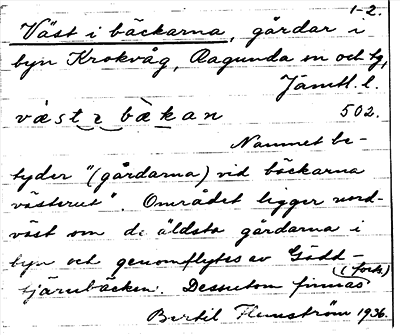 1-2.
Väst i bäckarna, gårdar i
byn Krokvåg, Ragunda sn och tg,
Jämtl. l.
väst i bèkan 502.
Namnet be-
tyder "(gårdarna) vid bäckarna
västerut". Området ligger nord-
väst om de äldsta gårdarna i
byn och genomflytes av Gädd-
tjärnbäcken. Dessutom finnas (forts)
Bertil Flemström 1936.